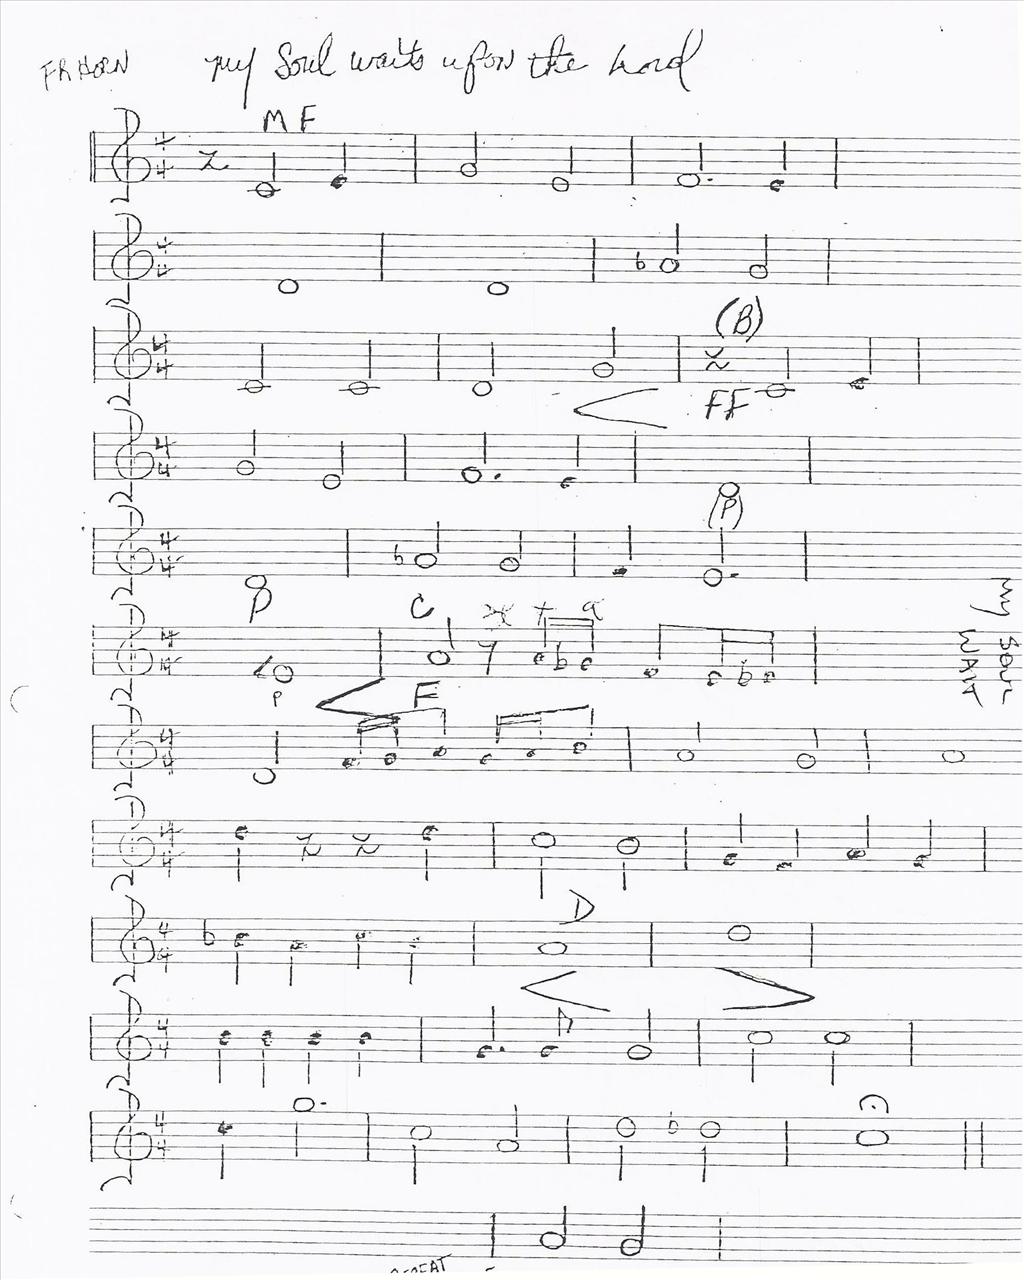 FR HORN My Soul waits upon the Lord
MF
4
4
4
4
(B)
4
4
FF
4
4
(P)
4
4
P
My Soul
Wait
C
4
4
P
F
4
4
4
4
D
4
4
4
4
4
4
REPEAT